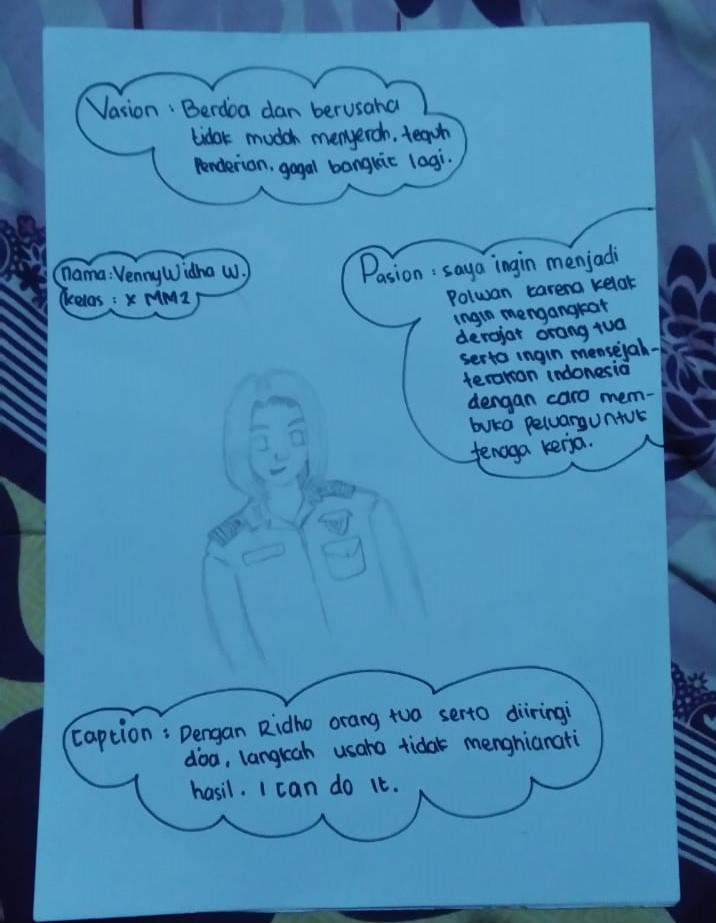 Vasion : Berdoa dan berusaha
tidak mudah menyerah, teguh
Penderian, gagal bangkit lagi.
nama : Venny Widha W.
kelas : X MM2
Pasion : saya ingin menjadi
Polwan karena kelak
ingin mengangkat
derajat orang tua
serta ingin mensejah-
terakan Indonesia
dengan cara mem-
buka peluang untuk
tenaga kerja.
Caption : Dengan Ridho orang tua serta diiringi
doa, langkah usaha tidak menghianati
hasil. I can do it.